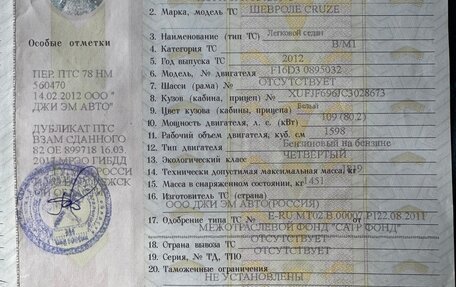 Особые отметки
ПЕР. ПТС 78 НМ
560470
14.02.2012 ООО "
ДЖИ ЭМ АВТО"
ДУБЛИКАТ ПТС
ВЗАМ СДАННОГО
82 ОЕ 899718 16.03.
МРЭО ГИБДД
2. Марка, модель ТС ШЕВРОЛЕ CRUZE
3. Наименование (тип ТС) Легковой седан
4. Категория ТС B/M1
5. Год выпуска ТС 2012
6. Модель, № двигателя F16D3 0895032
7. Шасси (рама) № ОТСУТСТВУЕТ
8. Кузов (кабина, прицеп) № XUFJF696JC3028673
9. Цвет кузова (кабины, прицепа) Белый
10. Мощность двигателя, л. с. (кВт) 109 (80.2)
11. Рабочий объем двигателя, куб. см 1598
12. Тип двигателя Бензиновый на бензине
13. Экологический класс ЧЕТВЕРТЫЙ
14. Технически допустимая максимальная масса, кг
15. Масса в снаряженном состоянии, кг 1451
16. Изготовитель ТС (страна)
ООО ДЖИ ЭМ АВТО(РОССИЯ)
17. Одобрение типа ТС № E-RU MT02.B.00007.P1 22.08.2011
МЕЖОТРАСЛЕВОЙ ФОНД "САТР ФОНД"
18. Страна вывоза ТС ОТСУТСТВУЕТ
19. Серия, № ТД, ТПО ОТСУТСТВУЕТ
20. Таможенные ограничения
НЕ УСТАНОВЛЕНЫ